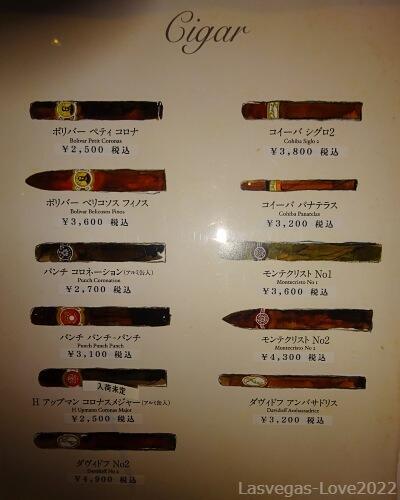 Cigar
ボリバー ペティ コロナ
Bolivar Petit Coronas
￥2,500 税込
コイーバ シグロ2
Cohiba Siglo 2
￥3,800 税込
ボリバー ベリコソス フィノス
Bolivar Belicosos Finos
￥3,600 税込
コイーバ パナテラス
Cohiba Panatelas
￥3,200 税込
パンチ コロネーション(アルミ缶入)
Punch Coronation
￥2,700 税込
モンテクリスト No1
Montecristo No 1
￥3,600 税込
パンチ パンチ-パンチ
Punch Punch Punch
￥3,100 税込
モンテクリスト No2
Montecristo No 2
￥4,300 税込
入荷未定
H アップマン コロナスメジャー(アルミ缶入)
H Upmann Coronas Major
￥2,500 税込
ダヴィドフ アンバサドリス
Davidoff Ambassadrice
￥3,200 税込
ダヴィドフ No2
Davidoff No 2
￥4,900 税込
Lasvegas-Love2022